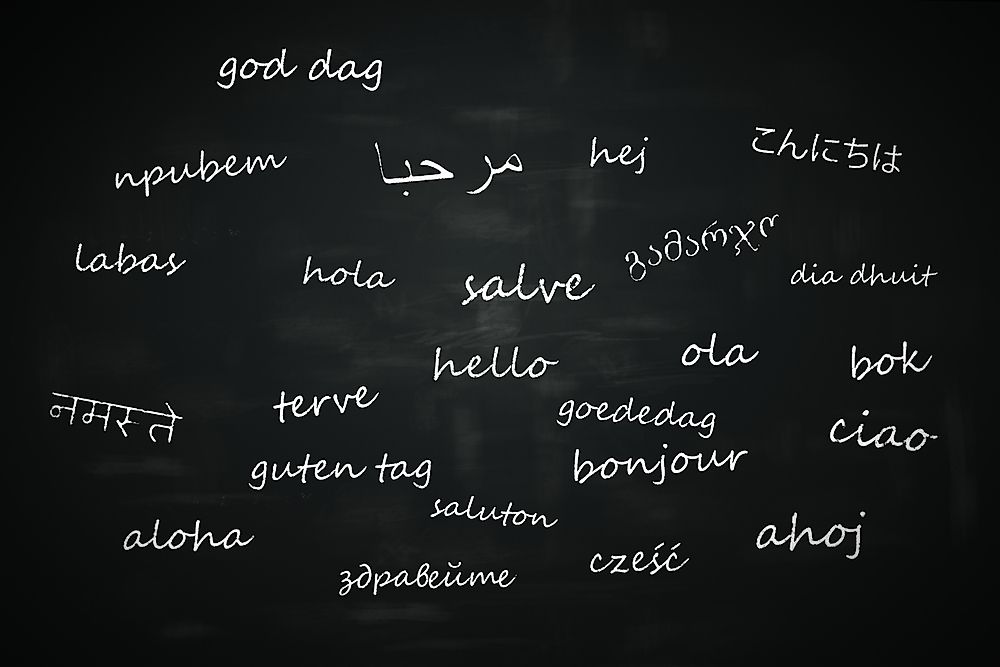 god dag
привет
مرحبا
hej
こんにちは
labas
hola
salve
გამარჯო
dia dhuit
hello
ola
bok
नमस्ते
terve
goededag
ciao
guten tag
bonjour
saluton
aloha
ahoj
здравейте
cześć